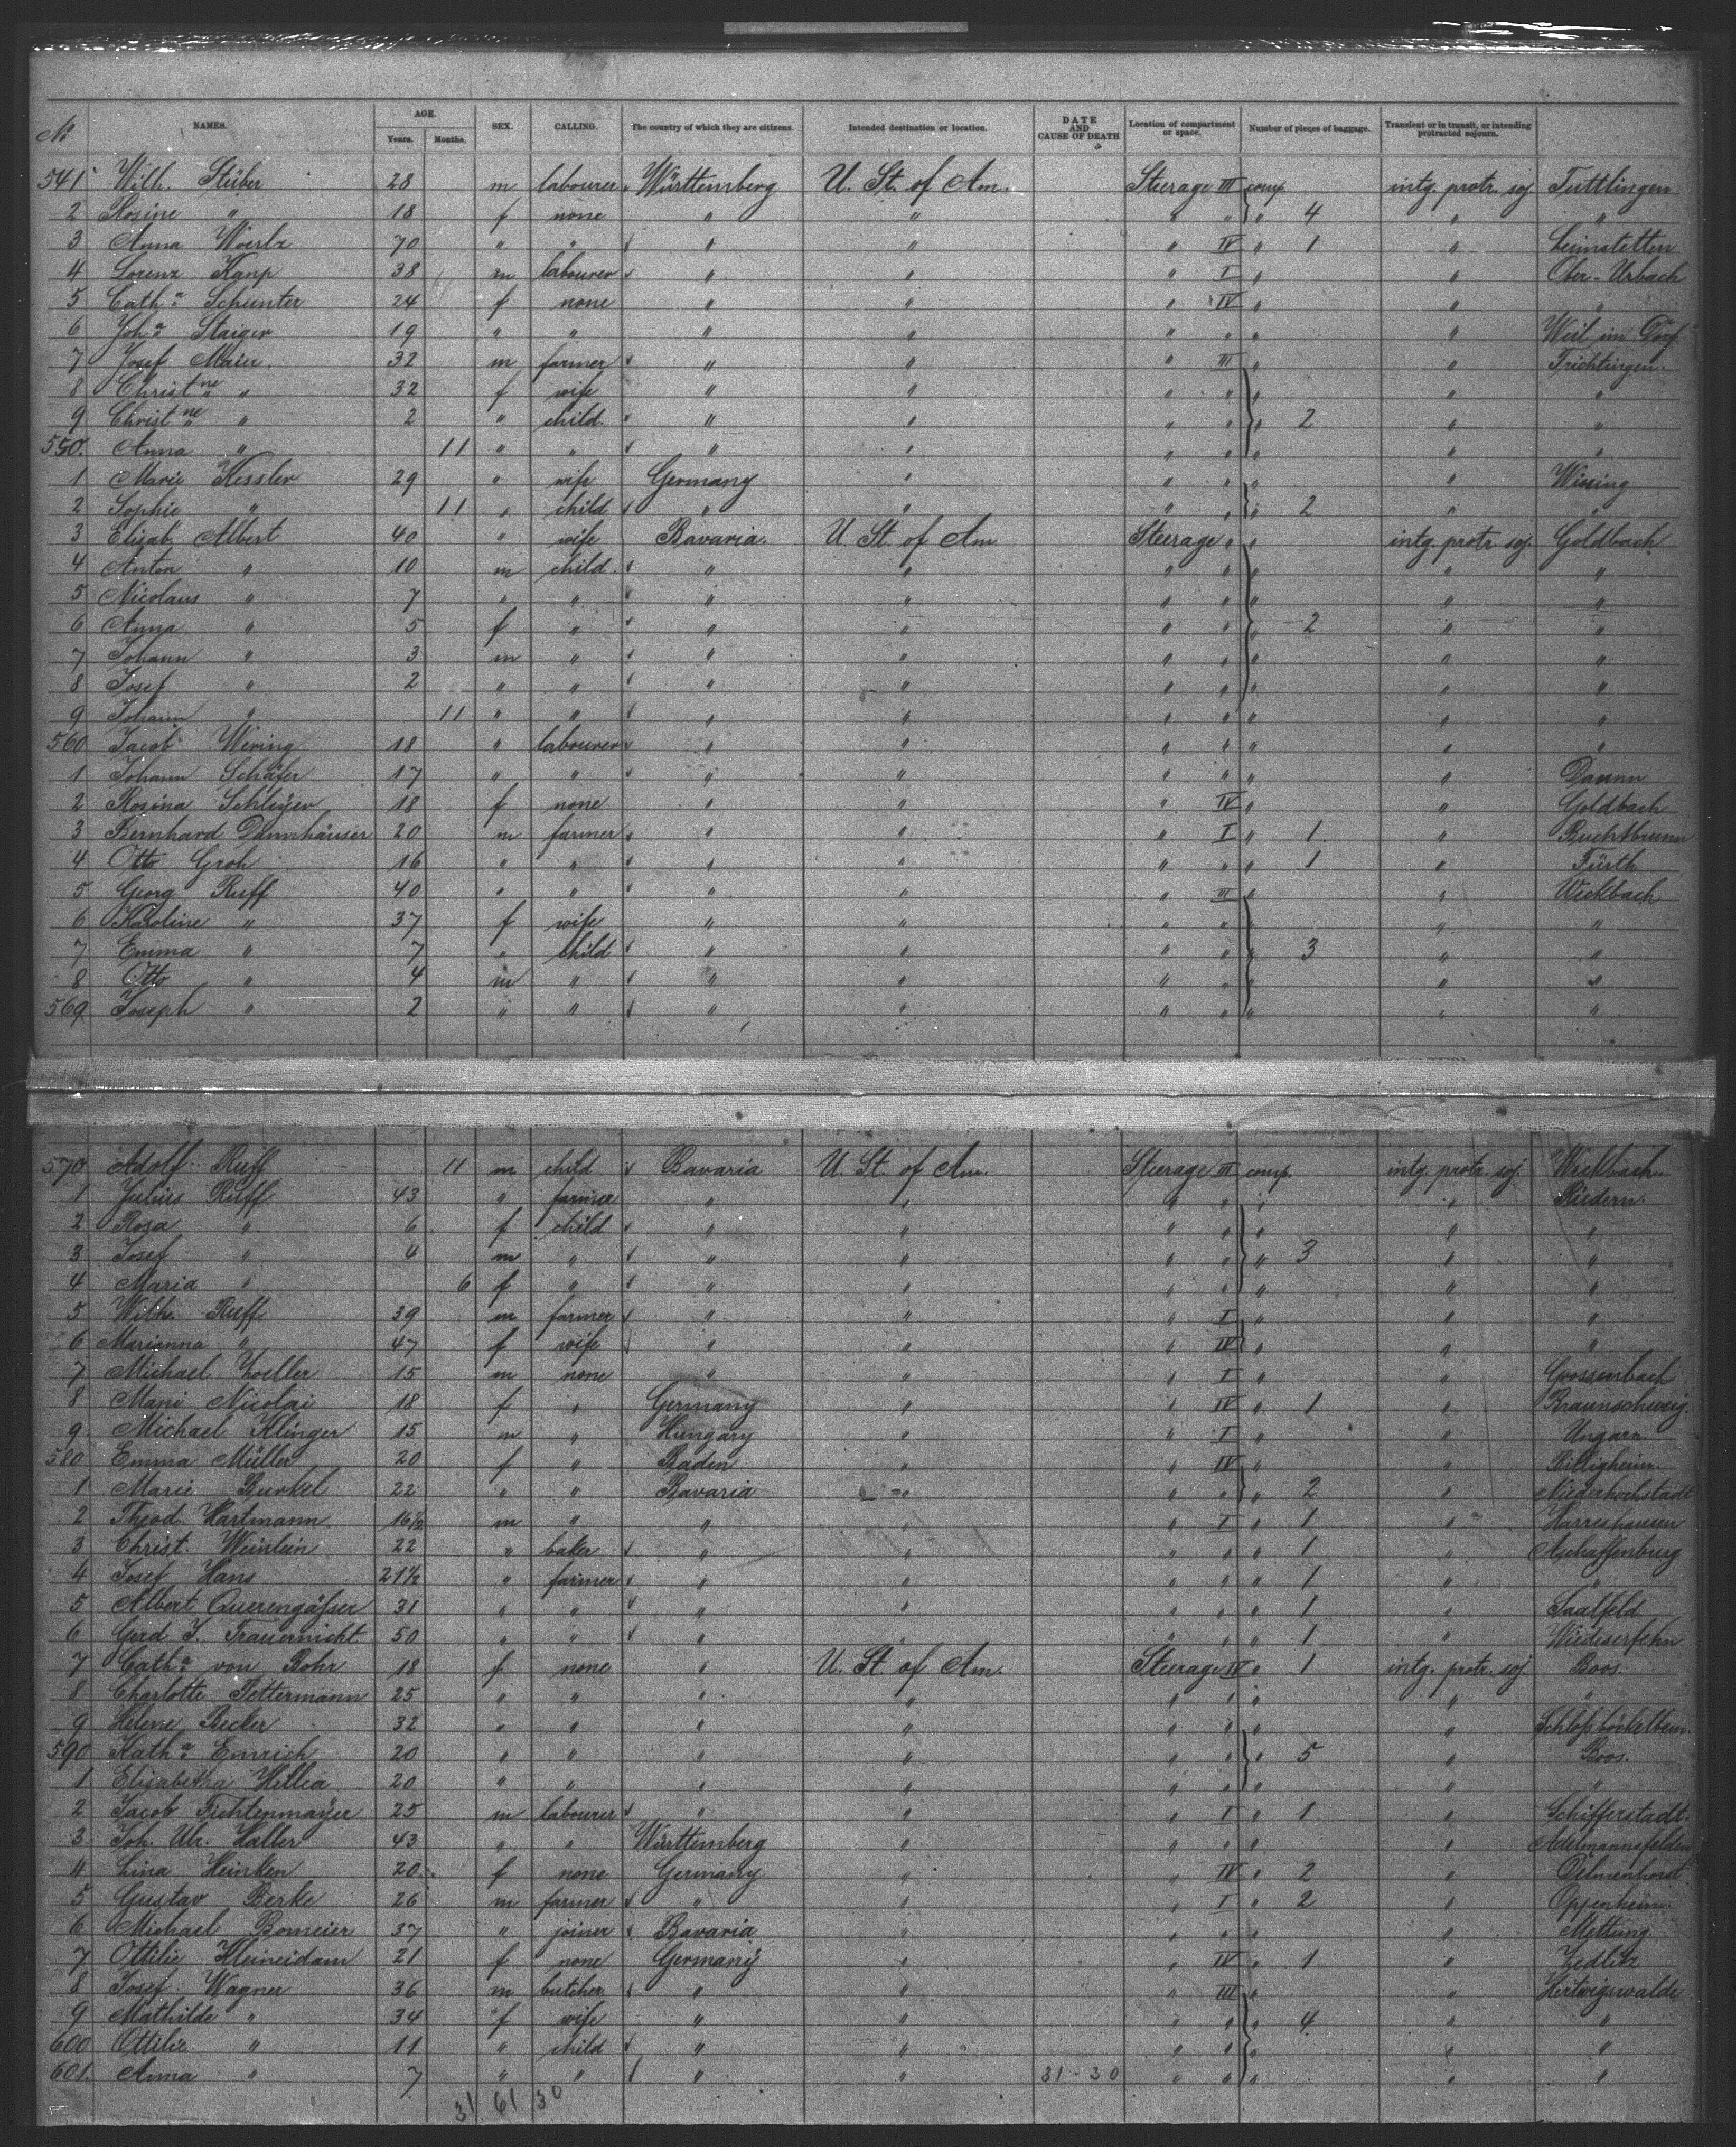 No NAMES. AGE. Years. Months. SEX. CALLING. The country of which they are citizens. Intended destination or location. DATE AND CAUSE OF DEATH Location of compartment or space. Number of pieces of baggage. Transient or in transit, or intending protracted sojourn.
541 Wilh. Stüber 28 m labourer Württemberg U. St. of Am. Steerage III comp. intg. protr. soj. Tuttlingen
2 Rosine " 18 f none " " " " " 4 " "
3 Anna Woerlz 70 " " " " " IV " 1 " Leinstetten
4 Lorenz Kanp 38 m labourer " " " I " " Ober-Urbach
5 Cath.a Schunter 24 f none " " " IV " " "
6 Joh.a Staiger 19 " " " " " " " " Weil im Dorf
7 Josef Maier 32 m farmer " " " III " " Trichtingen
8 Christne " 32 f wife " " " " " " "
9 Christne " 2 " child " " " " " 2 " "
550. Anna " 11 " " " " " " " " "
1 Marie Kessler 29 " wife Germany " " " " "
2 Sophie " 11 " child " " " " " 2 " "
3 Elisab. Albert 40 " wife Bavaria. U. St. of Am. Steerage " " intg. protr. soj. Goldbach
4 Anton " 10 m child " " " " " " "
5 Nicolaus " 7 " " " " " " " " "
6 Anna " 5 f " " " " " " 2 " "
7 Johann " 3 m " " " " " " " "
8 Josef " 2 " " " " " " " " "
9 Johann " 11 " " " " " " " " "
560 Jacob Wering 18 " labourer " " " " " " "
1 Johann Schäfer 17 " " " " " " " " Damm
2 Rosina Schleyer 18 f none " " " IV " " Goldbach
3 Bernhard Dannhäuser 20 m farmer " " " I " 1 " Buchtbrunn
4 Otto Groh 16 " " " " " " " 1 " Fürth
5 Georg Ruff 40 " " " " " III " Weckbach
6 Karoline " 37 f wife " " " " " " "
7 Emma " 7 " child " " " " " 3 " "
8 Otto " 4 m " " " " " " " "
569 Joseph " 2 " " " " " " " " "
570 Adolf Ruff 11 m child Bavaria U. St. of Am. Steerage III comp. intg. protr. soj. Weckbach
1 Julius Ruff 43 " farmer " " " " " " Riedern.
2 Rosa " 6 f child " " " " " " "
3 Josef " 4 m " " " " " " 3 " "
4 Maria " 6 f " " " " " " " "
5 Wilh. Ruff 39 m farmer " " " I " " "
6 Marianna " 47 f wife " " " IV " " "
7 Michael Zoeller 15 m none " " " I " " Grossenbach
8 Marie Nicolai 18 f " Germany " " IV " 1 " Braunschweig.
9. Michael Klinger 15 m " Hungary " " I " " Ungarn
580 Emma Müller 20 f " Baden " " IV " " Billigheim.
1 Marie Burkel 22 " " Bavaria " " " " 2 " Niederhochstadt
2 Theod. Hartmann 16½ m " " " " I " 1 " Harreshausen
3 Christ. Weinlein 22 " baker " " " " " 1 " Aschaffenburg
4 Josef Hans 21½ " farmer " " " " " 1 " "
5 Albert Querengäßser 31 " " " " " " " 1 " Saalfeld
6 Gerd J. Trauernicht 50 " " " " " " " 1 " Wiedeserfehn
7 Cath.a von Rohr 18 f none " U. St. of Am. Steerage IV " 1 intg. protr. soj. Boos.
8 Charlotte Pettermann 25 " " " " " " " " "
9 Helene Becker 32 " " " " " " " " Schloßböckelheim.
590 Kath.a Emrich 20 " " " " " " " 5 " Boos.
1 Elisabetha Hillca 20 " " " " " " " " "
2 Jacob Fichtenmayer 25 m labourer " " " I " 1 " Schifferstadt.
3 Joh. Ulr. Haller 43 " " Württemberg " " " " " Adelmannsfelden
4 Lina Heinken 20 f none Germany " " IV " 2 " Delmenhorst
5 Gustav Berke 26 m farmer " " " I " 2 " Oppenheim
6 Michael Bomeier 37 " joiner Bavaria " " " " " Mettung
7 Ottilie Kleineidam 21 f none Germany " " IV " 1 " Zedlitz
8 Josef Wagner 36 m butcher " " " III " Hertwigswalde
9 Mathilde " 34 f wife " " " " " 4 " "
600 Ottilie " 11 " child " " " " " " "
601. Anna " 7 " " " " 31-30 " " " " "
31 61 30